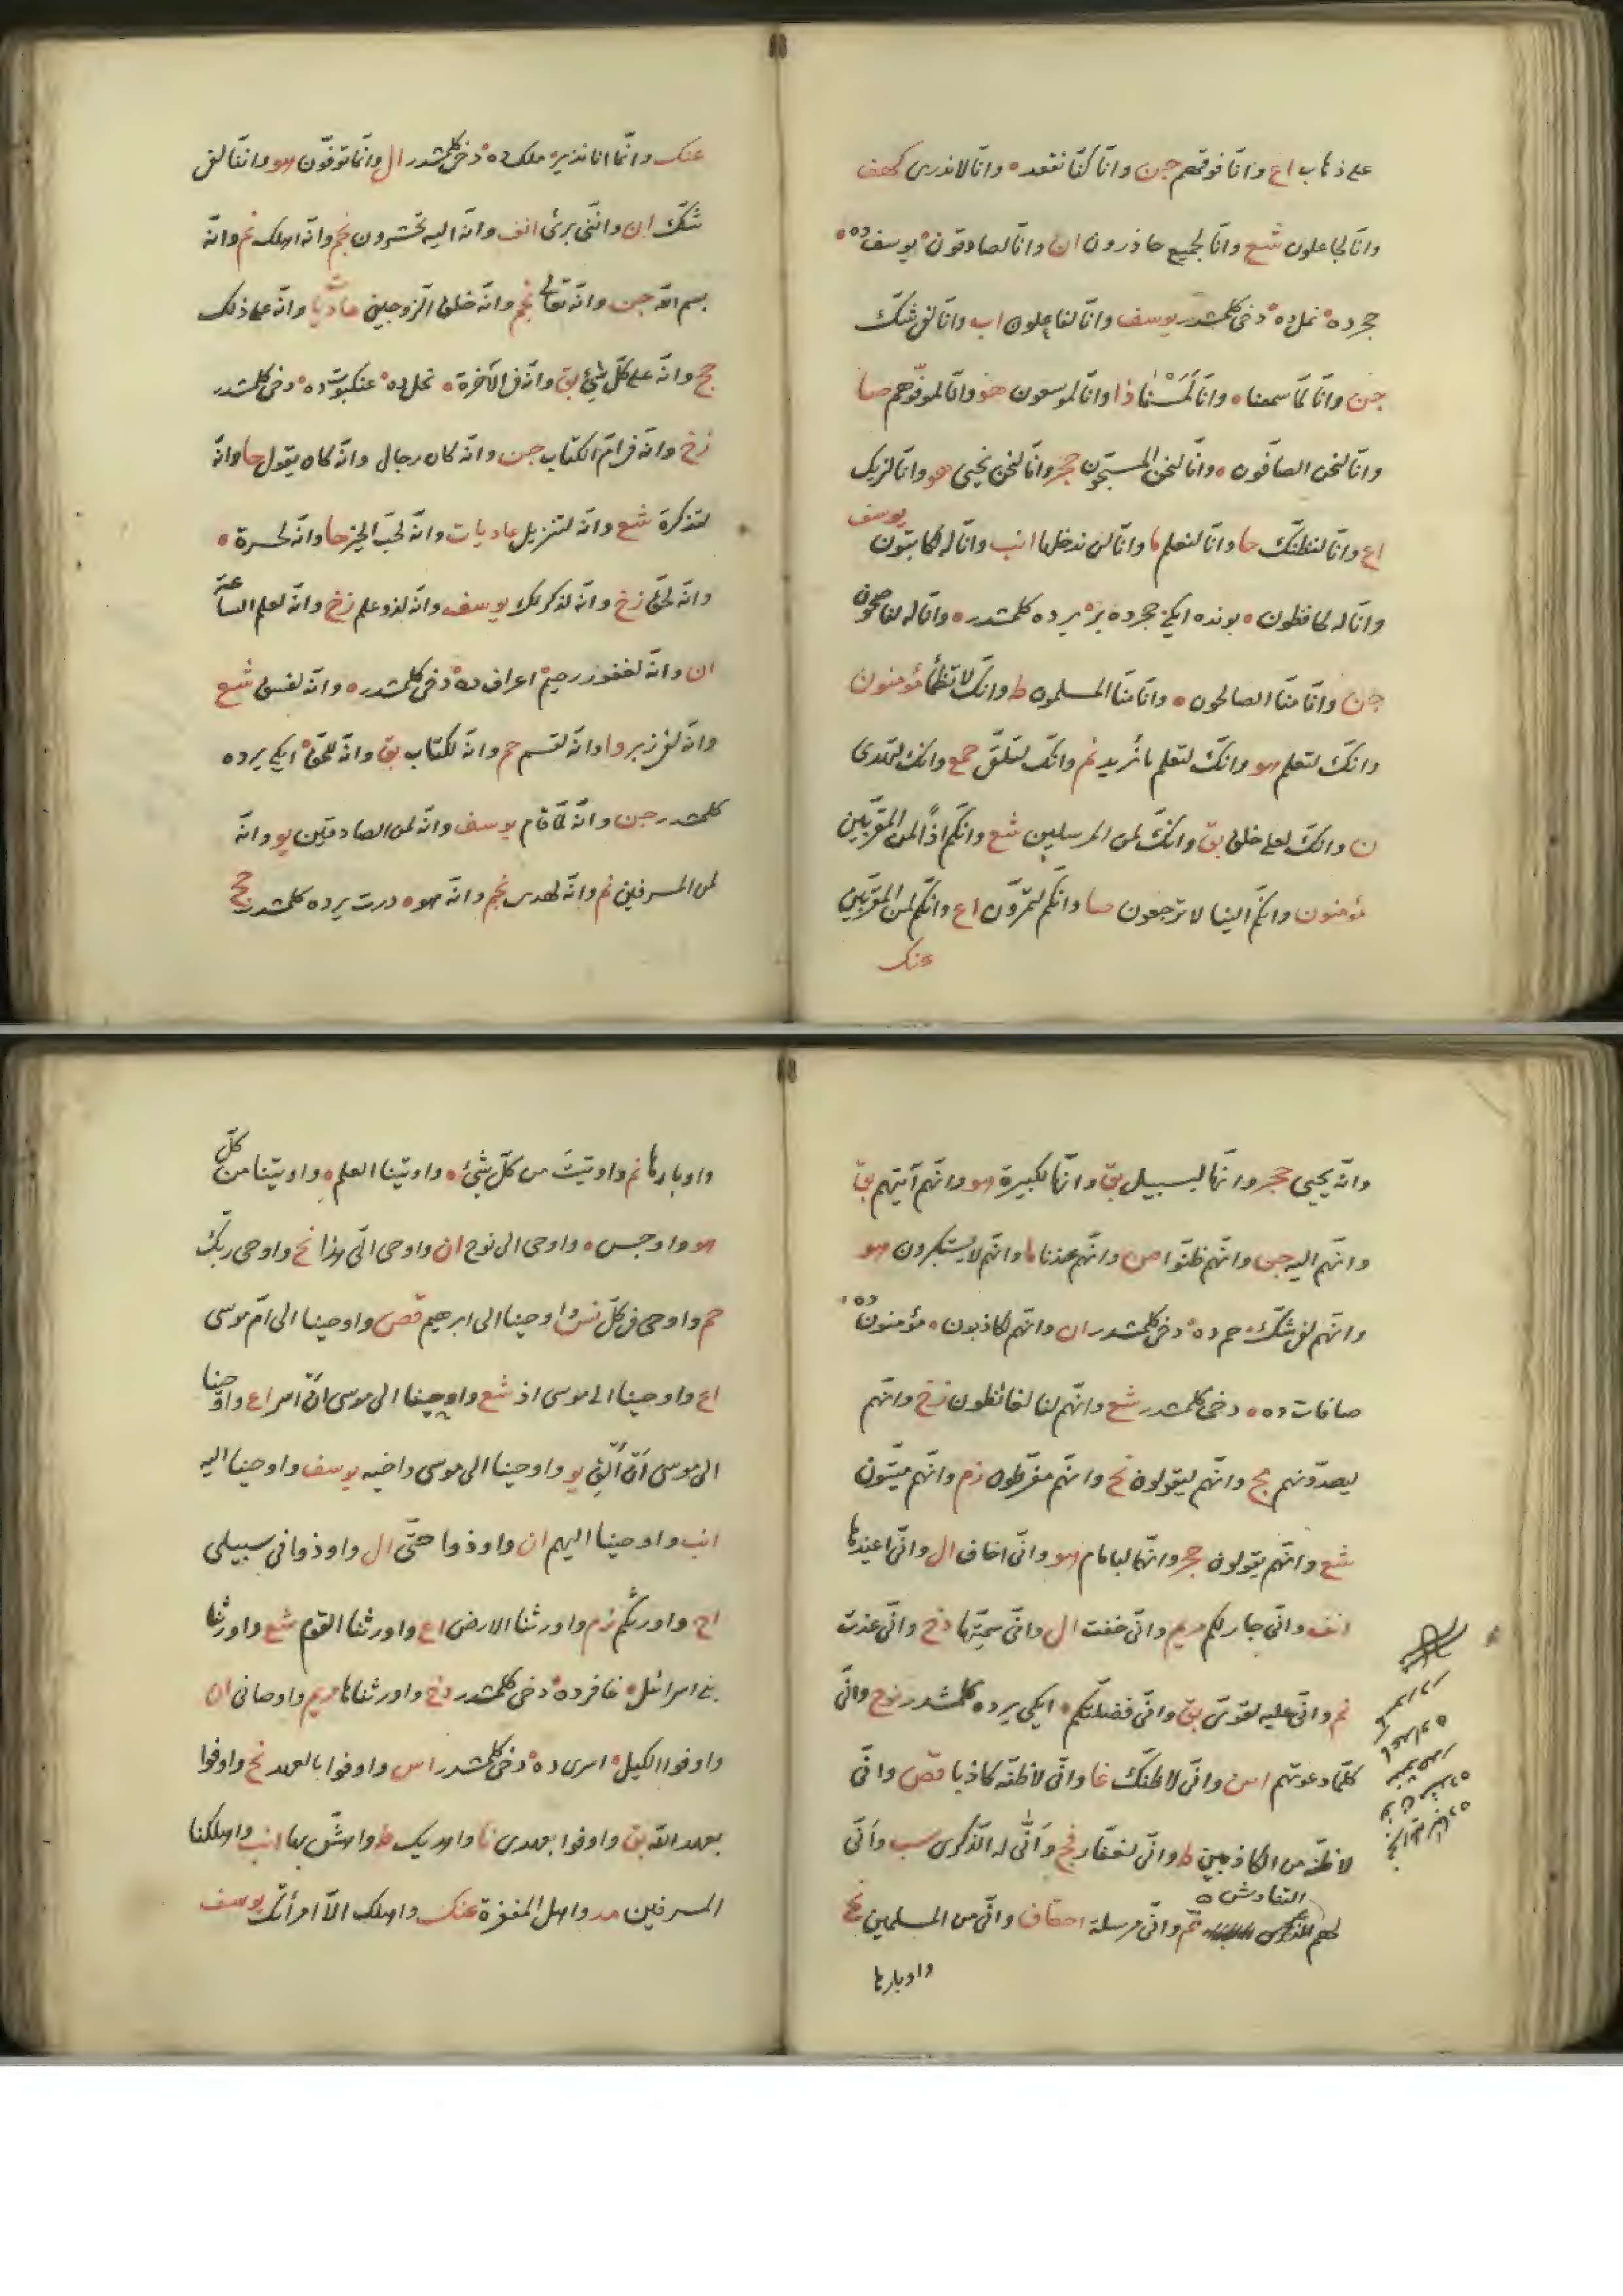 على ذهاب اع وانا فوقهم جن وانا كنا نقعد ه وانا لا ندرى كهف
وانا لجاعلون شع وانا لجميع حاذرون ان وانا لصادقون يوسف ده
حجر ده نمل ده دخى كلمشدر يوسف وانا لفاعلون اب وانا لفى شك
جن وانا لما سمعنا ه وانا لمسنا ذا وانا لموسعون هو وانا لموفوهم صا
وانا لنحن الصافون ه وانا لنحن المسبحون حجر وانا لنحن نحيى هو وانا لنريك
يوسف
اع وانا لنظنك حا وانا لنعلم ما وانا لن ندخلها انب وانا له كاتبون
وانا له لحافظون ه بونده ايكى حجر ده بر يرده كلمشدر ه وانا له لناصحون
جن وانا منا الصالحون ه وانا منا المسلمون ط وانك لا تظمأ مؤمنون
وانك لتعلم هو وانك لتعلم ما نريد نم وانك لتلقى جمع وانك لتهدى
ن وانك لعلى خلق بق وانك لمن المرسلين شع وانكم اذا لمن المقربين
مؤمنون وانكم الينا لا ترجعون صا وانكم لتمرون اع وانكم لمن المقربين
عنك
عنك وانما انا نذير ملك ده دخى كلمشدر ال وانما توفون هو واننا لفى
شك ان واننى برىء انف وانه اليه تحشرون نجم وانه اهلك نم وانه
بسم الله جن وانه تعالى نجم وانه خلق الزوجين عاديا وانه على ذلك
حج وانه على كل شئ بق وانه فى الاخرة ه نحل ده عنكبوت ده دخى كلمشدر
زخ وانه فى ام الكتاب جن وانه كان رجال وانه كان يقول حا وانه
لتذكرة شع وانه لتنزيل عاديات وانه لحب الخير حا وانه لحسرة ه
وانه لحق زخ وانه لذكر لك يوسف وانه لذو علم زخ وانه لعلم الساعة
ان وانه لغفور رحيم اعراف ده دخى كلمشدر ه وانه لفسق شع
وانه لفى زبر وا وانه لقسم حم وانه لكتاب بق وانه للحق ايكى يرده
كلمشدر جن وانه لما قام يوسف وانه لمن الصادقين يو وانه
لمن المسرفين نم وانه لهدى نجم وانه هو ه درت يرده كلمشدر حج
وانه يحيى حجر وانها لبسبيل بق وانها لكبيرة هو وانهم آتيهم بق
وانهم اليه جن وانهم ظنوا ص وانهم عندنا ما وانهم لا يستكبرون هو
وانهم لفى شك حم ده دخى كلمشدر ان وانهم لكاذبون ه مؤمنون ده
صافات ده ه دخى كلمشدر شع وانهم لنا لغائظون زخ وانهم
ليصدونهم مج وانهم ليقولون نح وانهم مفرطون زم وانهم ميتون
شع وانهم يقولون حجر وانهما لبامام هو وانى اخاف ال وانى اعيذها
انف وانى جار لكم مريم وانى خفت ال وانى سميتها دخ وانى عذت
نم وانى عليه لقوى بق وانى فضلتكم ه ايكى يرده كلمشدر نوح وانى
كلما دعوتهم اس وانى لاظنك غا وانى لاظنه كاذبا قص وانى
لاظنه من الكاذبين ط وانى لغفار فج وانى له الذكرى سب وانى
التناوش ه
لهم نم وانى مرسلة احقاف وانى من المسلمين نح
واوبارها
واوبارها نم واوتيت من كل شئ ه واوتينا العلم ه واوتينا من كل
هو واوجس ه واوحى الى نوح ان واوحى الى هذا نح واوحى ربك
حم واوحى فى كل نس واوحينا الى ابرهيم قص واوحينا الى ام موسى
اع واوحينا الى موسى اذ شع واوحينا الى موسى ان اسر اع واوحينا
الى موسى ان الق يو واوحينا الى موسى واخيه يوسف واوحينا اليه
انب واوحينا اليهم ان واوذوا حتى ال واوذوا فى سبيلى
اح واورثكم زم واورثنا الارض اع واورثنا القوم شع واورثنا
بنى اسرائل غافر ده دخى كلمشدر دخ واورثناها مريم واوصانى ان
واوفوا الكيل اسرى ده دخى كلمشدر اس واوفوا بالعهد نح واوفوا
بعهد الله بق واوفوا بعهدى نا واهديك ط واهش بها انب واهلكنا
المسرفين مد واهل المغفرة عنك واهلك الا امرأتك يوسف